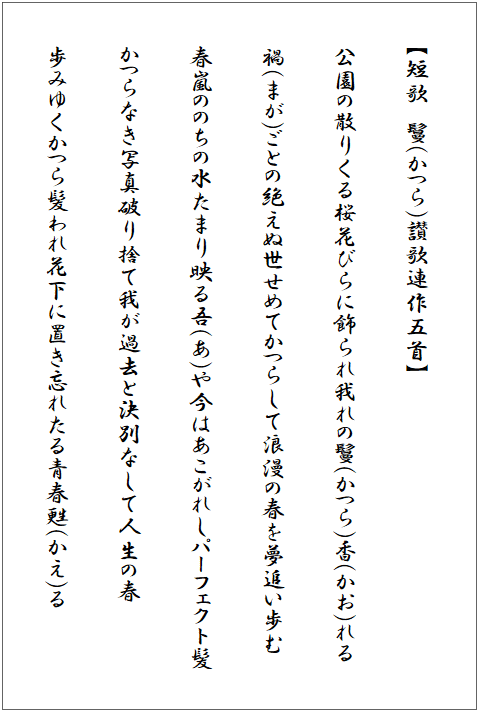 【短歌　鬘(かつら)讃歌連作五首】
公園の散りくる桜花びらに飾られ我れの鬘(かつら)香(かお)れる
禍(まが)ごとの絶えぬ世せめてかつらして浪漫の春を夢追い歩む
春嵐ののちの水たまり映る吾(あ)や今はあこがれしパーフェクト髪
かつらなき写真破り捨て我が過去と決別なして人生の春
歩みゆくかつら髪われ花下に置き忘れたる青春甦(かえ)る